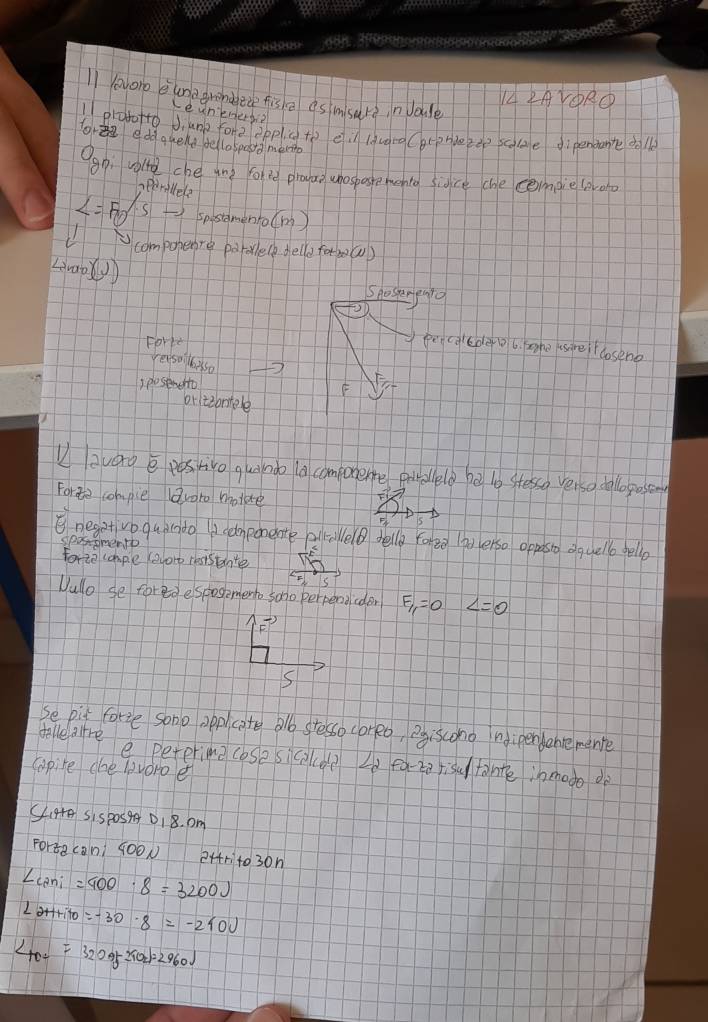 IL LAVORO
Il lavoro è una grandezza fisica e si misura in Joule
è un'energia
Il prodotto di una forza applicata è il lavoro (grandezza scalare dipendente dalla
forza ed a quella dello spostamento
Ogni volta che una forza provoca uno spostamento si dice che compie lavoro
parallela
L=F// · S → spostamento (m)
componente parallela della forza (N)
Lavoro (J)
Spostamento
per calcolarlo bisogna usare il coseno
Forza
verso il basso
spostamento
orizzontale
F
F//
Il lavoro è positivo quando la componente parallela ha lo stesso verso dello spostam
Forza compie lavoro motore
F
F//
S
È negativo quando la componente parallela della forza ha verso opposto a quello dello
spostamento
Forza compie lavoro resistente
F
F//
S
Nullo se forza e spostamento sono perpendicolari F//=0 L=0
F
S
Se più forze sono applicate allo stesso corpo, agiscono indipendentemente
dalle altre
e per prima cosa si calcola la forza risultante in modo da
capire che lavoro è
Slitta si sposta di 8.0m
Forza cani 400N attrito 30n
Lcani = 400 · 8 = 3200J
Lattrito = -30 · 8 = -240J
Ltot =